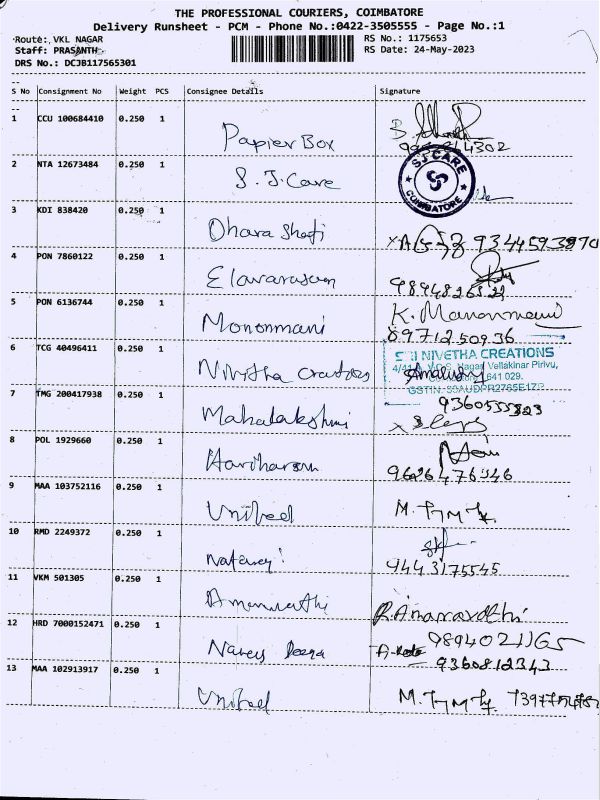 THE PROFESSIONAL COURIERS, COIMBATORE
Delivery Runsheet - PCM - Phone No.:0422-3505555 - Page No.:1
Route: VKL NAGAR RS No.: 1175653
Staff: PRASANTH RS Date: 24-May-2023
DRS No.: DCJB117565301
S No Consignment No Weight PCS Consignee Details Signature
1 CCU 100684410 0.250 1 Papier Box B.
2 NTA 12673484 0.250 1 S.J.Care
SJ CARE
COIMBATORE
3 KDI 838420 0.250 1 Dhara Shoji
4 PON 7860122 0.250 1 Elavarasan
5 PON 6136744 0.250 1 Mononmani K. Manonmani
8971250936
6 TCG 40496411 0.250 1 Nivitha Creations
SRI NIVETHA CREATIONS
Nagar, Vellakinar Pirivu,
641 029.
7 TMG 200417938 0.250 1 Mahalakshmi
8 POL 1929660 0.250 1 Hariharan
9626476346
9 MAA 103752116 0.250 1 United M.
10 RMD 2249372 0.250 1
9443175545
11 VKM 501305 0.250 1 Amaravathi R.Amaravathi
9894021165
12 HRD 7000152471 0.250 1
9360812343
13 MAA 102913917 0.250 1 United M.